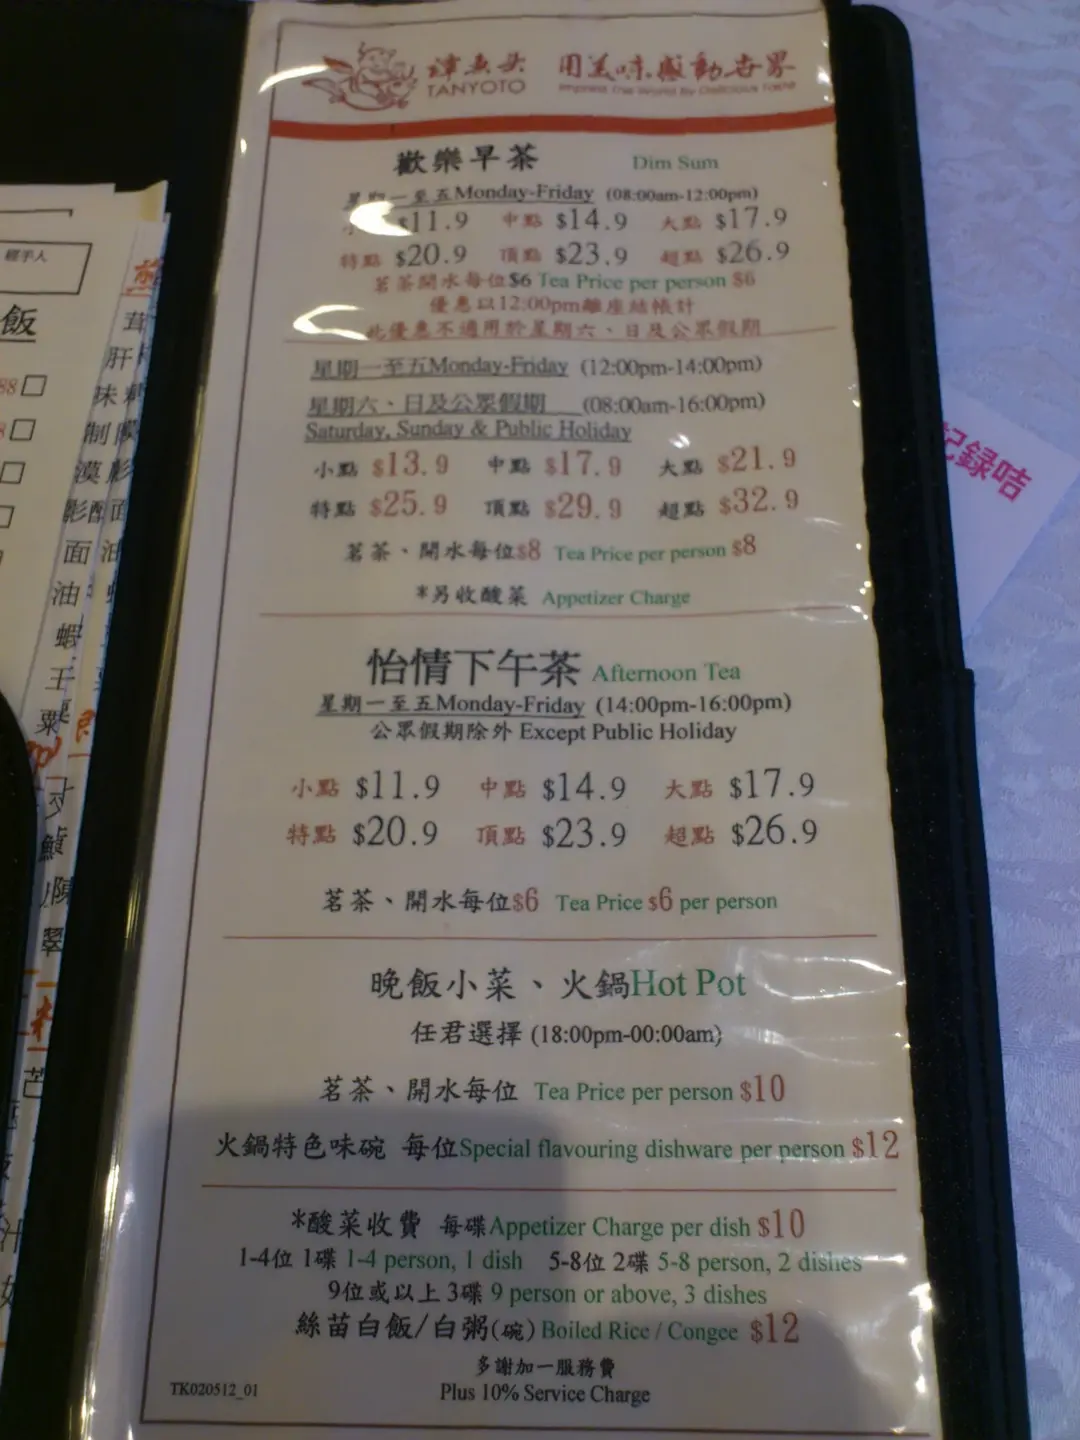 譚魚头 用美味感動世界
TANYOTO Impress The World By Delicious Taste
歡樂早茶 Dim Sum
星期一至五Monday-Friday (08:00am-12:00pm)
小 $11.9 中點 $14.9 大點 $17.9
特點 $20.9 頂點 $23.9 超點 $26.9
茗茶開水每位$6 Tea Price per person $6
優惠以12:00pm離座結帳計
此優惠不適用於星期六、日及公眾假期
星期一至五Monday-Friday (12:00pm-14:00pm)
星期六、日及公眾假期 (08:00am-16:00pm)
Saturday, Sunday & Public Holiday
小點 $13.9 中點 $17.9 大點 $21.9
特點 $25.9 頂點 $29.9 超點 $32.9
茗茶、開水每位$8 Tea Price per person $8
*另收酸菜 Appetizer Charge
怡情下午茶 Afternoon Tea
星期一至五Monday-Friday (14:00pm-16:00pm)
公眾假期除外 Except Public Holiday
小點 $11.9 中點 $14.9 大點 $17.9
特點 $20.9 頂點 $23.9 超點 $26.9
茗茶、開水每位$6 Tea Price $6 per person
晚飯小菜、火鍋Hot Pot
任君選擇 (18:00pm-00:00am)
茗茶、開水每位 Tea Price per person $10
火鍋特色味碗 每位Special flavouring dishware per person $12
*酸菜收費 每碟Appetizer Charge per dish $10
1-4位 1碟 1-4 person, 1 dish 5-8位 2碟 5-8 person, 2 dishes
9位或以上 3碟 9 person or above, 3 dishes
絲苗白飯/白粥(碗) Boiled Rice / Congee $12
多謝加一服務費
TK020512_01 Plus 10% Service Charge
經手人
飯
記録咭